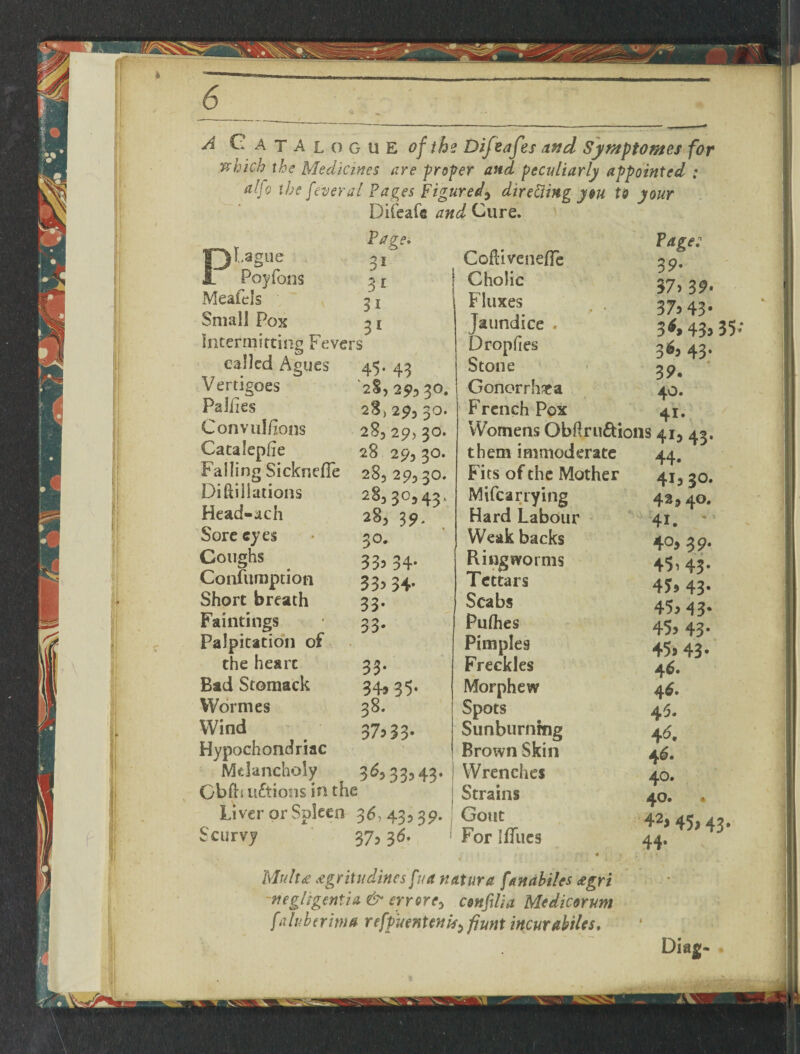 6
A CATALOGUE of the Diſeaſes and Symptomes for
which the Medicines are proper and peculiarly appointed :
alſo the ſeveral Pages Figured, directing you to your
Diſeaſe and Cure.
Page.
PLague 31
Poyſons 31
Meaſels 31
Small Pox 31
Intermitting Fevers
called Agues 45. 43
Vertigoes 28, 29, 30.
Palſies 28, 29, 30.
Convulſions 28, 29, 30.
Catalepſie 28 29, 30.
Falling Sickneſſe 28, 29, 30.
Diſtillations 28, 30, 43.
Head-ach 28, 39.
Sore eyes 30.
Coughs 33, 34.
Conſumption 33, 34.
Short breath 33.
Faintings 33.
Palpitation of
the heart 33.
Bad Stomack 34, 35.
Wormes 38.
Wind 37, 33.
Hypochondriac
Melancholy 36, 33, 43.
Obſtructions in the
Liver or Spleen 36, 43, 39.
Scurvy 37, 36.
Page:
Coſtiveneſſe 39.
Cholic 37, 39.
Fluxes 37, 43.
Jaundice . 36, 43, 35.
Dropſies 36, 43.
Stone 39.
Gonorrhæa 40.
French Pox 41.
Womens Obſtructions 41, 43.
them immoderate 44.
Fits of the Mother 41, 30.
Miſcarrying 42, 40.
Hard Labour 41.
Weak backs 40, 39.
Ringworms 45, 43.
Tettars 45, 43.
Scabs 45, 43.
Puſhes 45, 43.
Pimples 45, 43.
Freckles 46.
Morphew 46.
Spots 46.
Sunburning 46.
Brown Skin 46.
Wrenches 40.
Strains 40.
Gout 42, 45, 43.
For Iſſues 44.
Multæ ægritudines ſua natura ſanabiles ægri
negligentia & errore, conſilia Medicorum
ſaluberima reſpuentenis, fiunt incurabiles.
Diag-